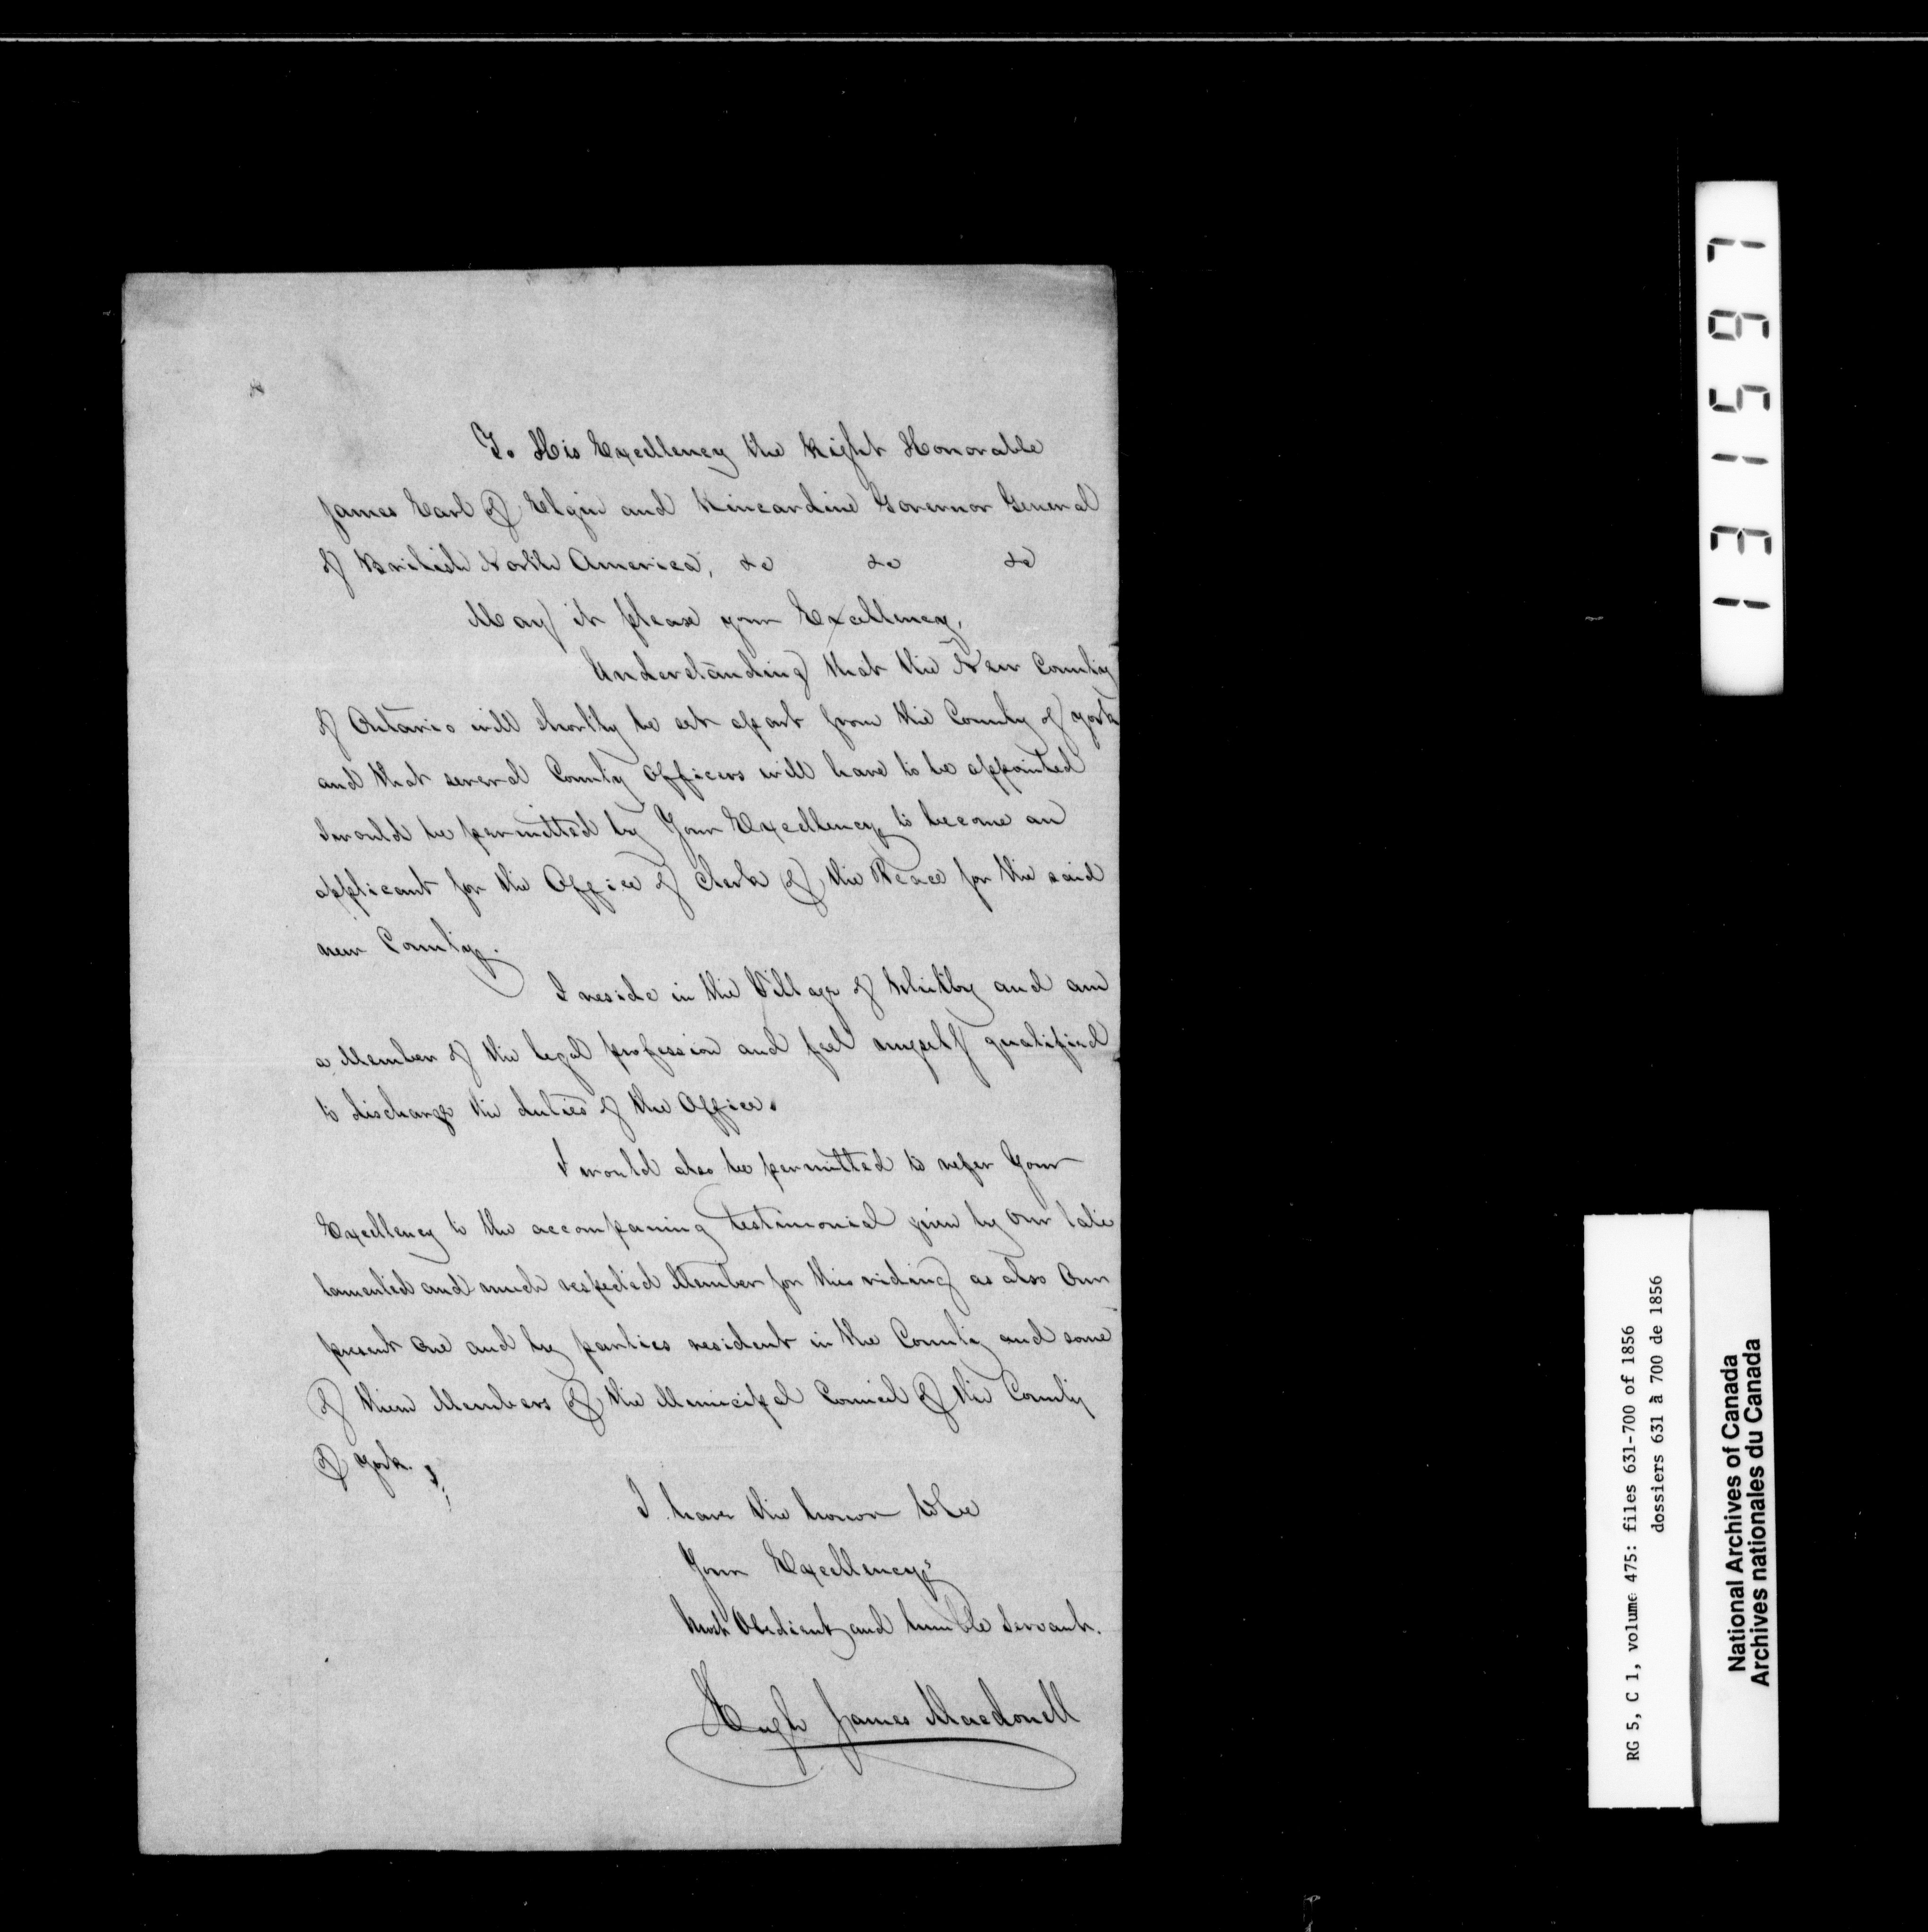 To His Excellency the Right Honorable
James Earl of Elgin and Kincardine Governor General
of British North America, &c &c &c
May it please your Excellency,
Understanding that the New County
of Ontario will shortly be set apart from the County of York
and that several County Officers will have to be appointed
I would be permitted by Your Excellency to become an
applicant for the Office of Clerk of the Peace for the said
new County.
I reside in the Village of Whitby and am
a Member of the legal profession and feel myself qualified
to discharge the duties of the Office.
I would also be permitted to refer Your
Excellency to the accompaning testimonial given by our late
lamented and much respected Member for this riding as also Our
present One and by parties resident in the County and some
of them Members of the Municipal Council of the County
of York.
I have the honor to be
Your Excellency's
Most Obedient and humble Servant.
Hugh James Macdonell
131597
RG 5, C 1, volume 475: files 631-700 of 1856
dossiers 631 à 700 de 1856
National Archives of Canada
Archives nationales du Canada